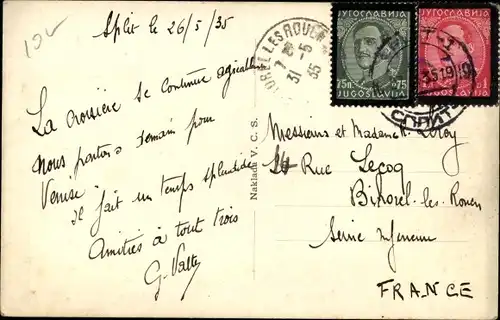 Split le 26/5/35
La croisière se continue agréablement
Nous partons demain pour
Venise
il fait un temps splendide
Amitiés à tous trois
G. Valte
Naklada V. C. S.
BIHOREL LES ROUEN
31 -5 35
ЈУГОСЛАВИЈА
75п. п.75
JUGOSLAVIJA
ЈУГОСЛАВИЈА
JUGOSLAVIJA
SPLIT
СПЛИТ
Messieurs et Madame Leroy
24 Rue Lecoq
Bihorel-les-Rouen
Seine Inferieure
FRANCE